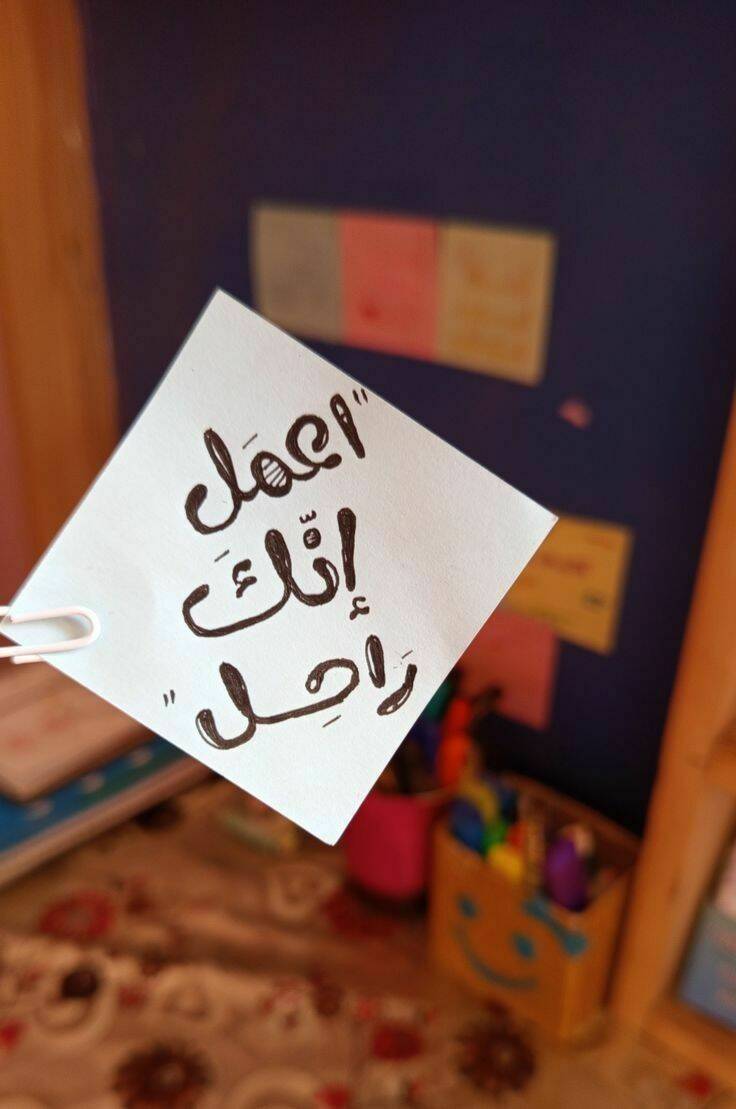 "اعمَل
إنّكَ
رَاحِل"